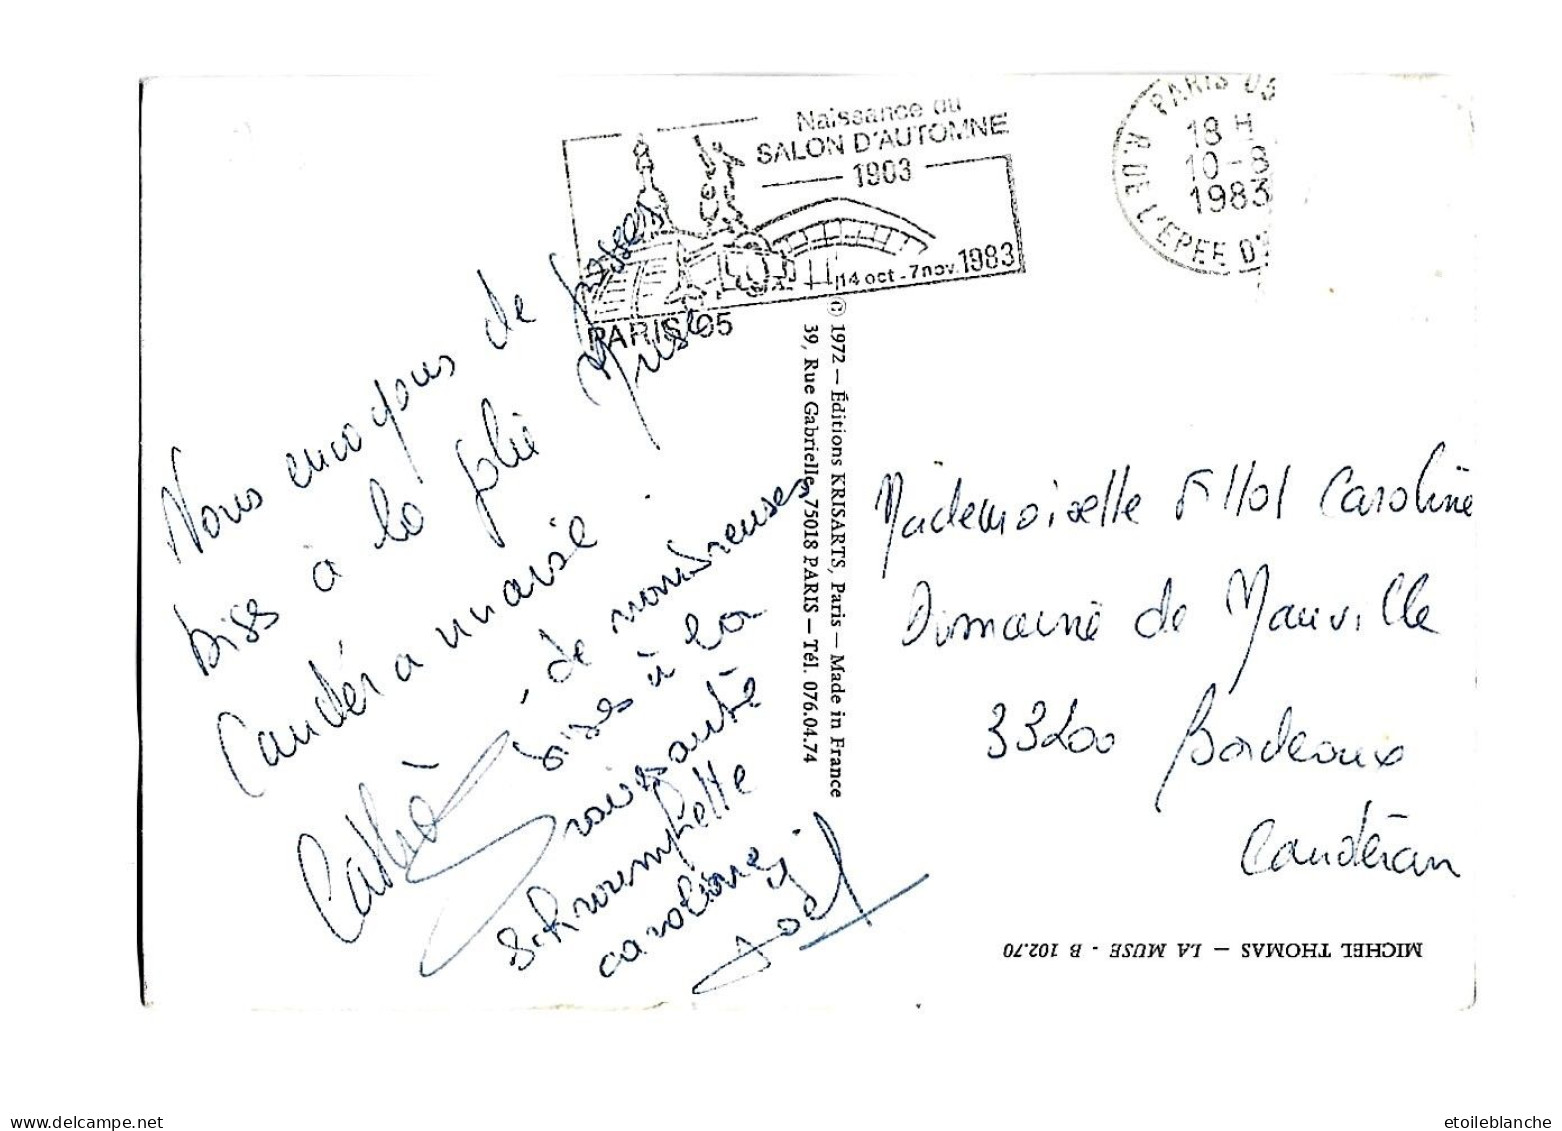 Naissance du
SALON D'AUTOMNE
1903
14 oct - 7 nov. 1983
PARIS 05
PARIS 05
18 H
10-8
1983
R. DE L'EPEE D'
Nous envoyons de grosses
biss à la jolie Muse
Caudéranaise.
Cathé
de nombreuses
bises à la
ravissante
schtroumpfette
caroline
Joël
© 1972 — Éditions KRISARTS, Paris — Made in France
39, Rue Gabrielle, 75018 PARIS — Tél. 076.04.74
Mademoiselle Fillol Caroline
Domaine de Mauville
33200 Bordeaux
Caudéran
MICHEL THOMAS — LA MUSE - B 102.70
etoileblanche